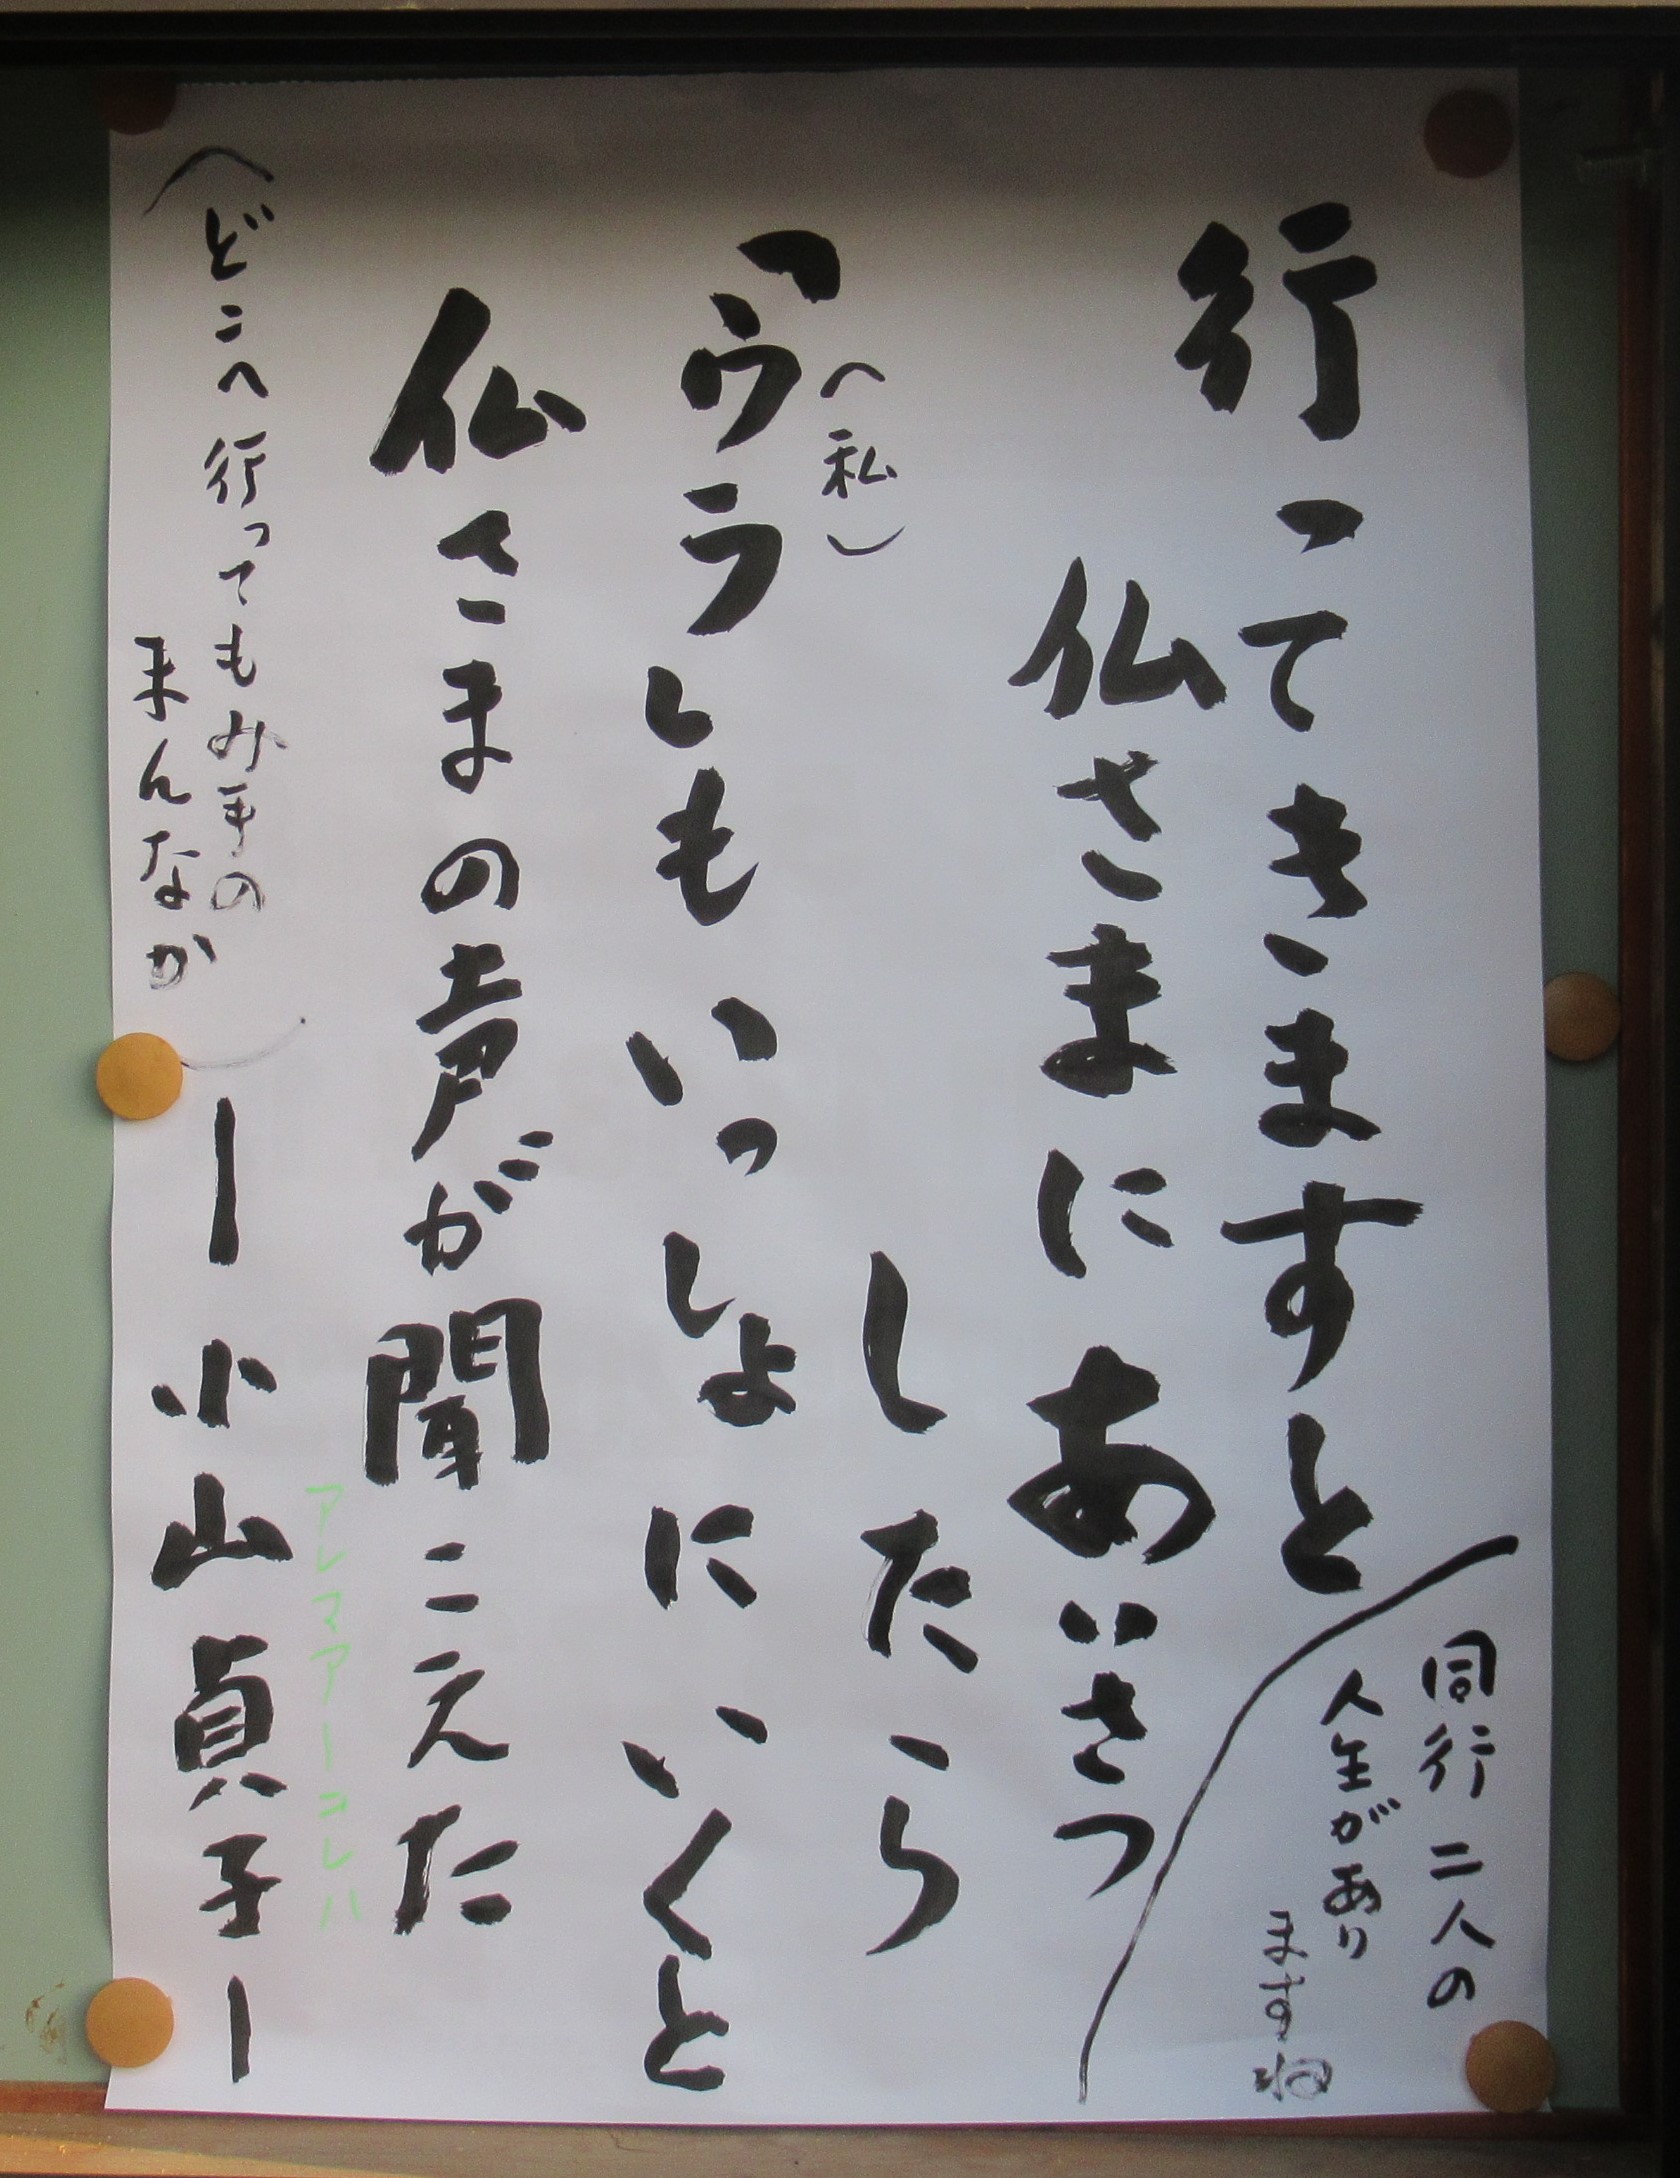 行ってきますと
仏さまにあいさつ
したら
「ウラしもいっしょにいくと
(私)
仏さまの声が聞こえた
(どこへ行ってもみ手の
まんなか)
ー小山貞子ー
同行二人の
人生があり
ますね